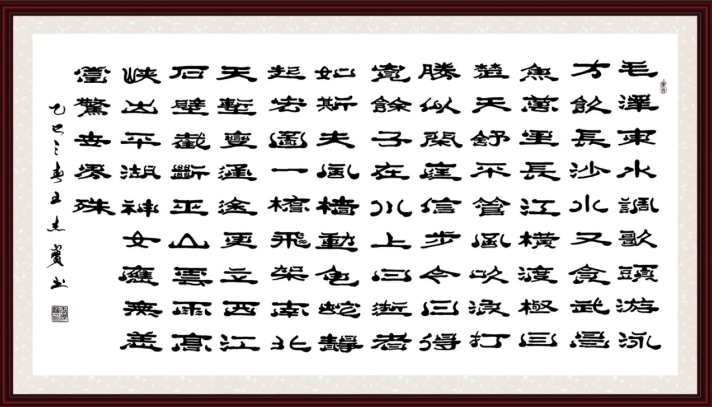 毛澤東水調歌頭游泳
才飲長沙水又食武昌
魚萬里長江橫渡極目
楚天舒不管風吹浪打
勝似閑庭信步今日得
寬餘子在川上曰逝者
如斯夫風檣動龜蛇靜
起宏圖一橋飛架南北
天塹變通途更立西江
石壁截斷巫山雲雨高
峽出平湖神女應無恙
當驚世界殊
乙巳之春王志賓书